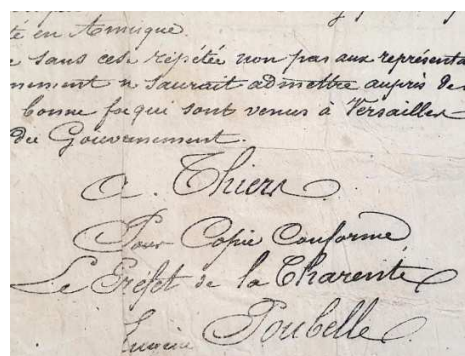 té en Amérique.
sans cesse répétée non pas aux représenta
nement n saurait admettre auprès de
bonne foi qui sont venus à Versailles
du Gouvernement.
A. Thiers
Pour Copie Conforme
Le Préfet de la Charente
Eugène Poubelle